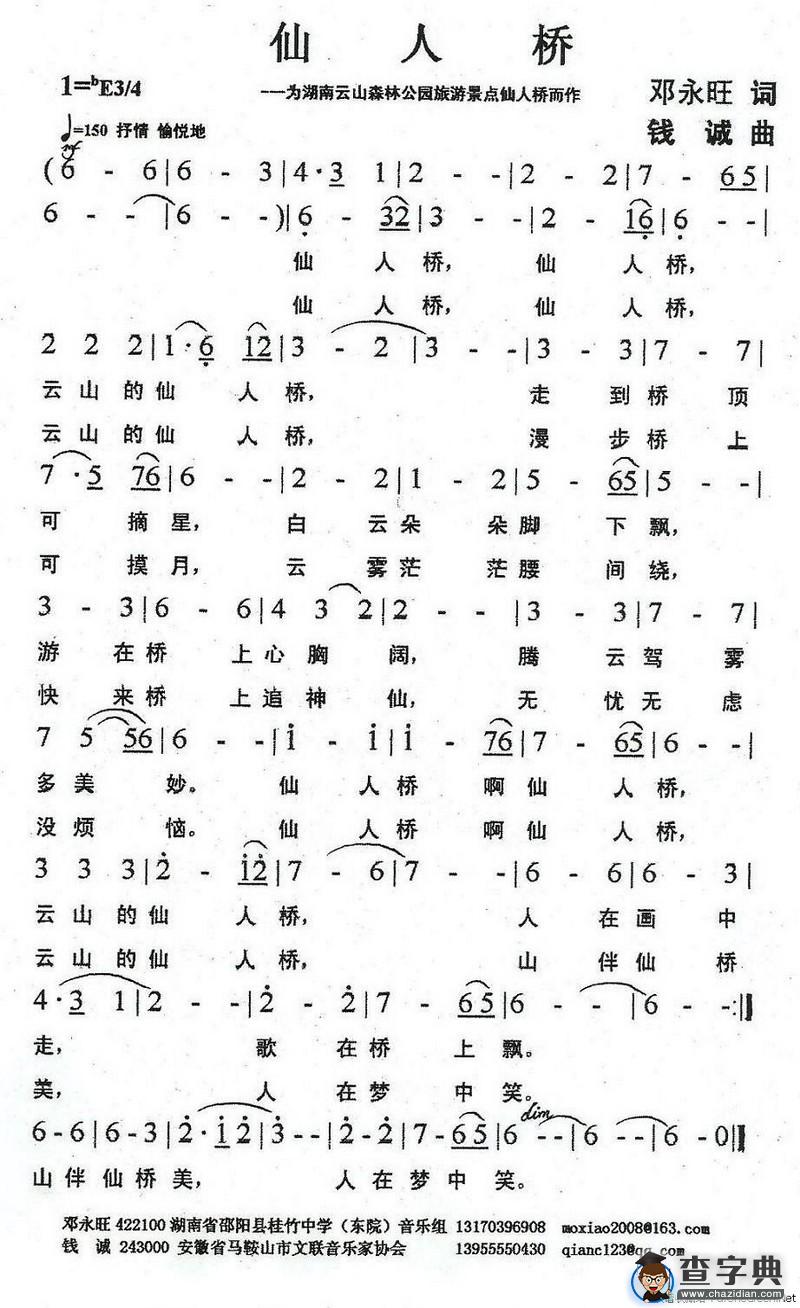 仙人桥
1=ᵇE3/4
——为湖南云山森林公园旅游景点仙人桥而作
邓永旺 词
♩=150 抒情 愉悦地
钱诚 曲
mf
(6 - 6|6 - 3|4·3 1|2 - -|2 - 2|7 - 65|
6 - -|6 - -)|6 - 32|3 - -|2 - 16|6 - -|
仙人桥，仙人桥，
仙人桥，仙人桥，
2 2 2|1·6 12|3 - 2|3 - -|3 - 3|7 - 7|
云山的仙人桥，走到桥顶
云山的仙人桥，漫步桥上
7·5 76|6 - -|2 - 2|1 - 2|5 - 65|5 - -|
可摘星，白云朵朵脚下飘，
可摸月，云雾茫茫腰间绕，
3 - 3|6 - 6|4 3 2|2 - -|3 - 3|7 - 7|
游在桥上心胸阔，腾云驾雾
快来桥上追神仙，无忧无虑
7 5 56|6 - -|i - i|i - 76|7 - 65|6 - -|
多美妙。仙人桥啊仙人桥，
没烦恼。仙人桥啊仙人桥，
3 3 3|2̇ - i2̇|7 - 6|7 - -|6 - 6|6 - 3|
云山的仙人桥，人在画中
云山的仙人桥，山伴仙桥
4·3 1|2 - -|2̇ - 2̇|7 - 65|6 - -|6 - -:‖
走，歌在桥上飘。
美，人在梦中笑。
dim
6-6|6-3|2̇·i2̇|3̇--|2̇-2̇|7-65|6--|6--|6-0‖
山伴仙桥美，人在梦中笑。
邓永旺 422100 湖南省邵阳县桂竹中学（东院）音乐组 13170396908 moxiao2008@163.com
钱诚 243000 安徽省马鞍山市文联音乐家协会 13955550430 qianc123@qq.com
查字典
www.chazidian.com